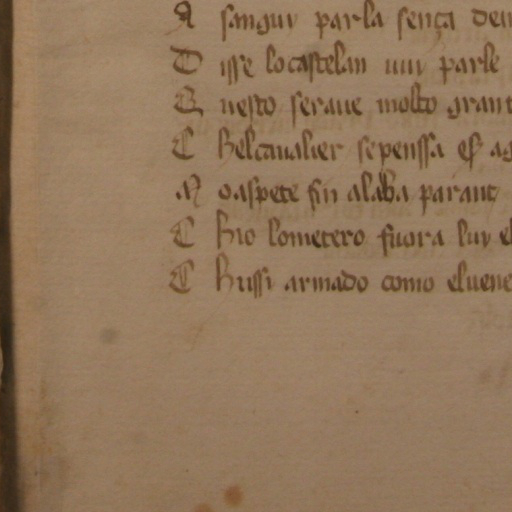 A sanguy parla sença dem
D isse lo castelan uuy parle
Q uesto seraue molto grant
C helcaualier se penssa es ag
M oaspete fin alaba parant
C hio lometero fuora luy el
C hussi armado como eluene